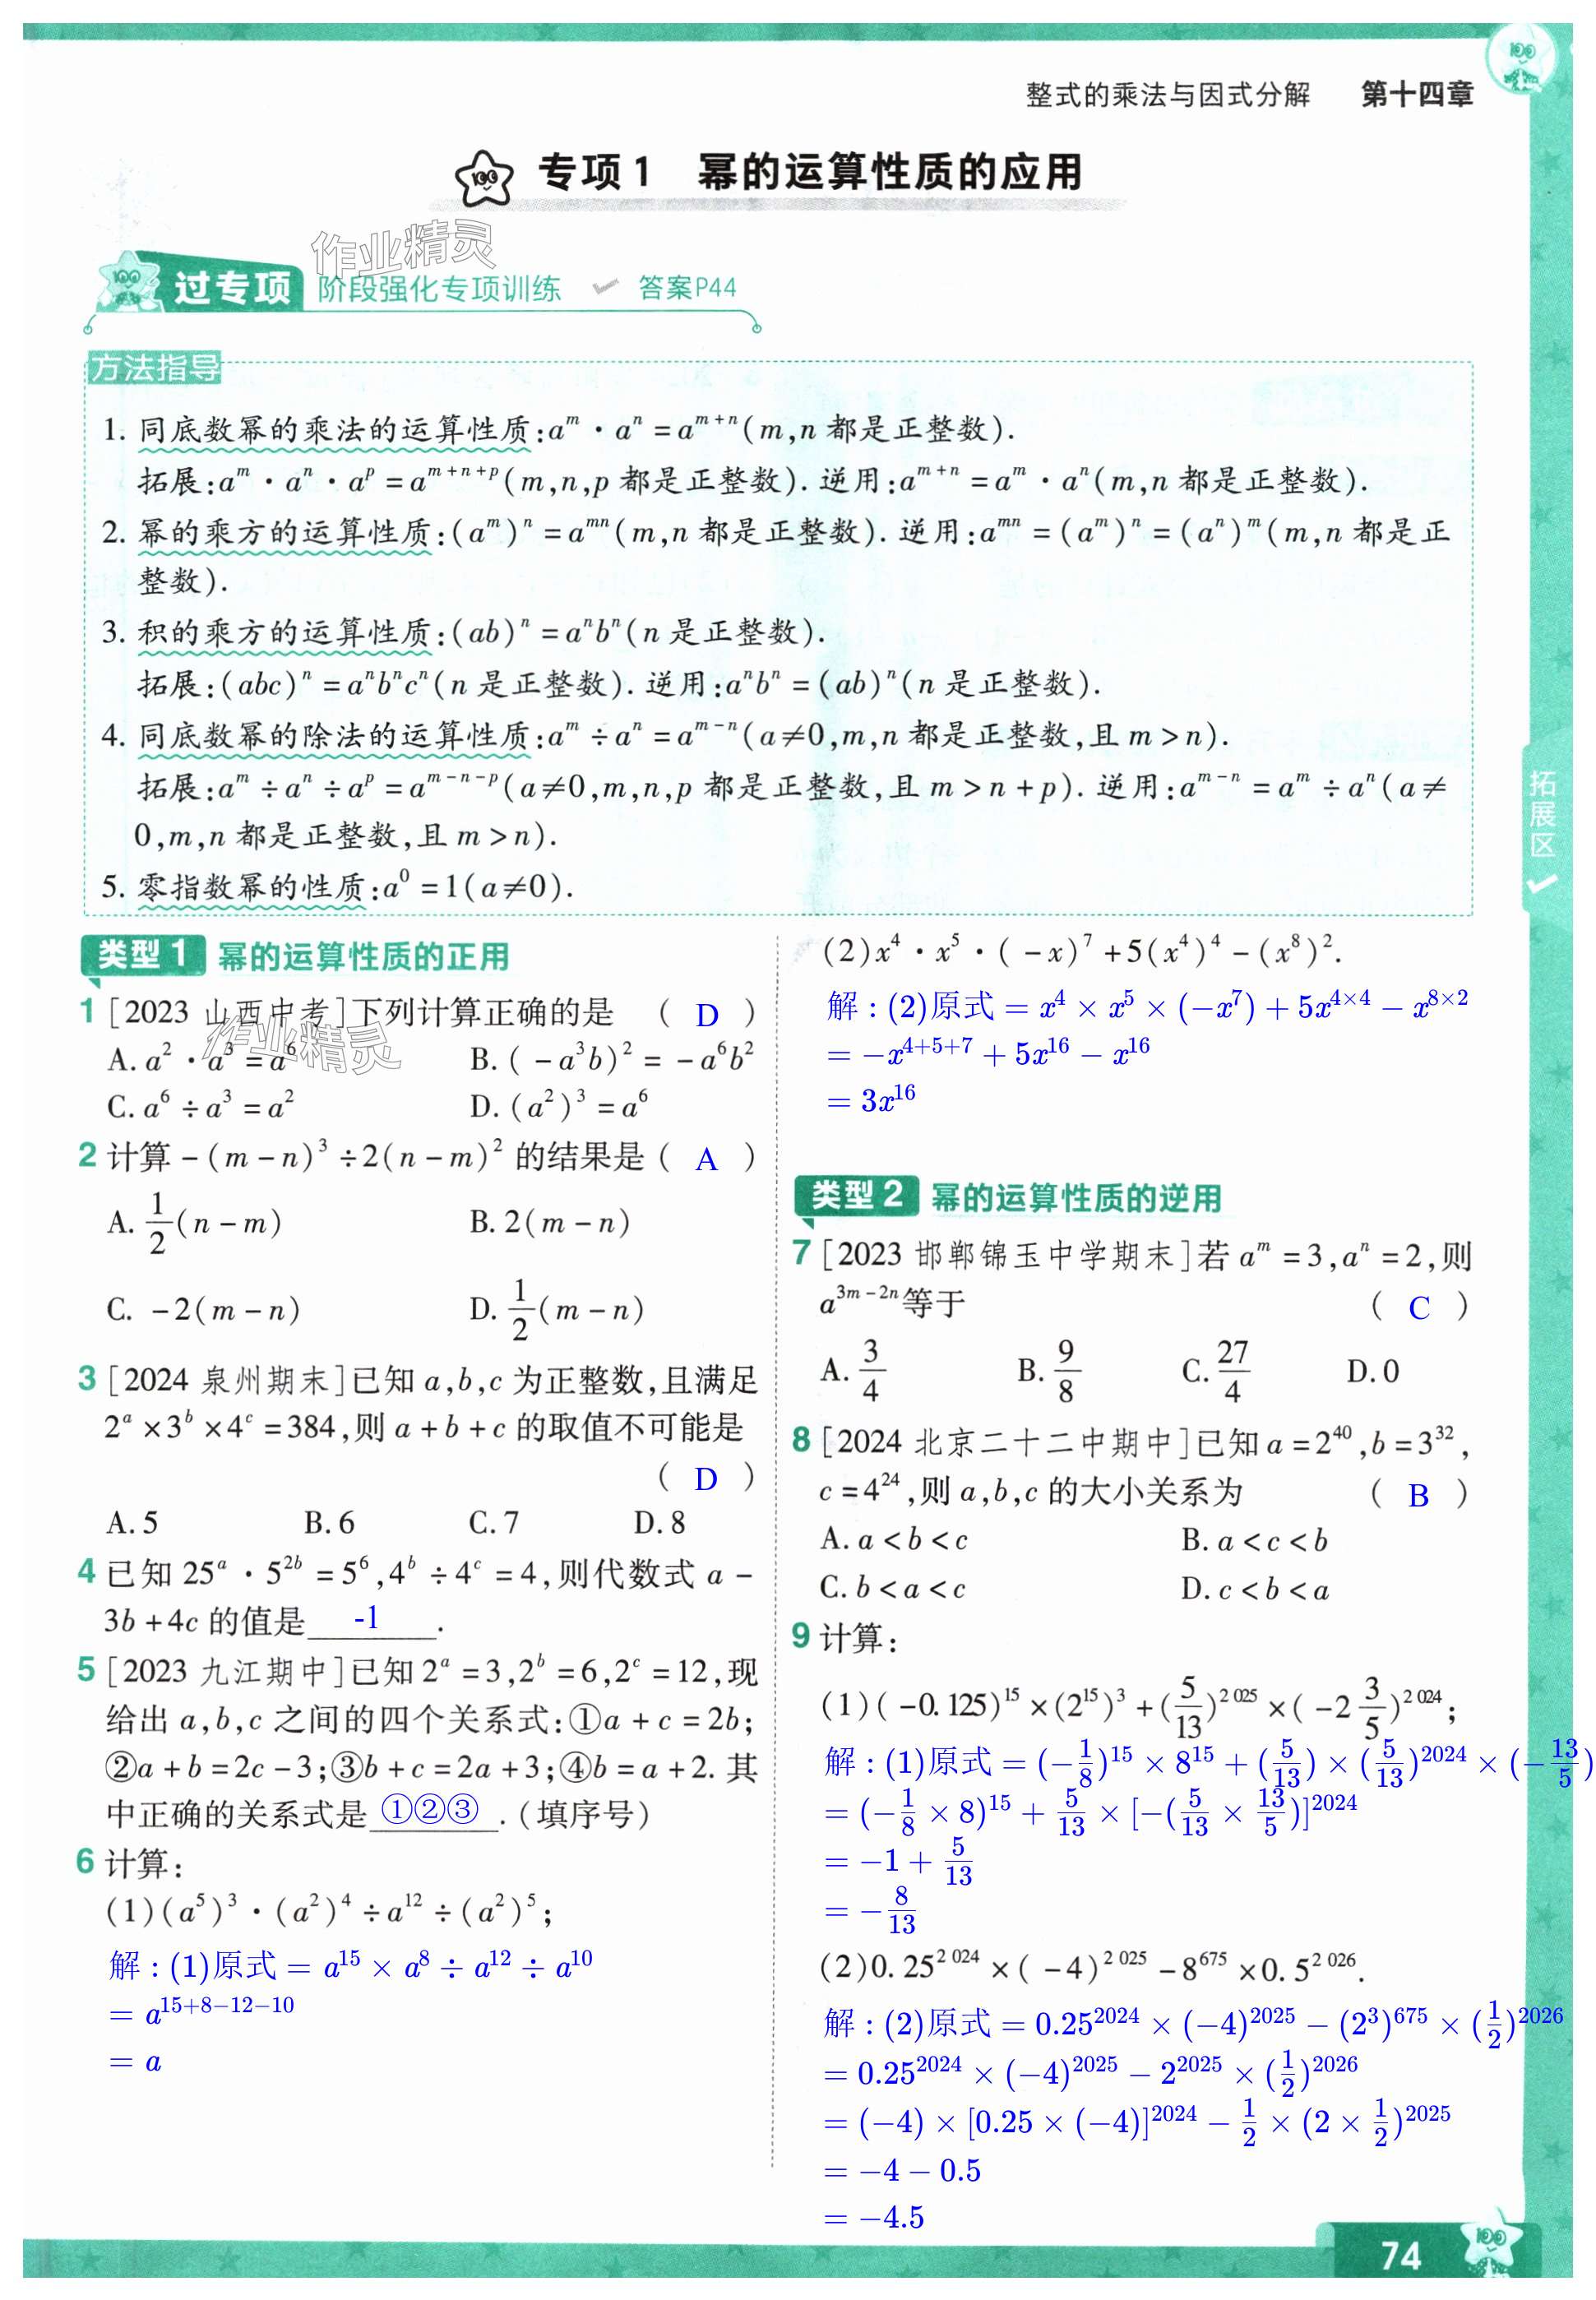 整式的乘法与因式分解 第十四章
专项1 幂的运算性质的应用
作业精灵
过专项 阶段强化专项训练 答案P44
方法指导
1. 同底数幂的乘法的运算性质:a^m · a^n = a^{m+n}(m,n 都是正整数).
拓展:a^m · a^n · a^p = a^{m+n+p}(m,n,p 都是正整数). 逆用:a^{m+n} = a^m · a^n(m,n 都是正整数).
2. 幂的乘方的运算性质:(a^m)^n = a^{mn}(m,n 都是正整数). 逆用:a^{mn} = (a^m)^n = (a^n)^m(m,n 都是正
整数).
3. 积的乘方的运算性质:(ab)^n = a^n b^n(n 是正整数).
拓展:(abc)^n = a^n b^n c^n(n 是正整数). 逆用:a^n b^n = (ab)^n(n 是正整数).
4. 同底数幂的除法的运算性质:a^m ÷ a^n = a^{m-n}(a≠0,m,n 都是正整数,且 m > n).
拓展:a^m ÷ a^n ÷ a^p = a^{m-n-p}(a≠0,m,n,p 都是正整数,且 m > n + p). 逆用:a^{m-n} = a^m ÷ a^n(a≠
0,m,n 都是正整数,且 m > n).
5. 零指数幂的性质:a^0 = 1(a≠0).
类型1 幂的运算性质的正用
1 [2023 山西中考]下列计算正确的是 ( D )
作业精灵
A. a^2 · a^3 = a^6 B. (-a^3b)^2 = -a^6b^2
C. a^6 ÷ a^3 = a^2 D. (a^2)^3 = a^6
2 计算 -(m-n)^3 ÷ 2(n-m)^2 的结果是 ( A )
A. \frac{1}{2}(n-m) B. 2(m-n)
C. -2(m-n) D. \frac{1}{2}(m-n)
3 [2024 泉州期末]已知 a,b,c 为正整数,且满足
2^a × 3^b × 4^c = 384,则 a+b+c 的取值不可能是
( D )
A. 5 B. 6 C. 7 D. 8
4 已知 25^a · 5^{2b} = 5^6,4^b ÷ 4^c = 4,则代数式 a -
3b + 4c 的值是 -1 .
5 [2023 九江期中]已知 2^a = 3,2^b = 6,2^c = 12,现
给出 a,b,c 之间的四个关系式:①a + c = 2b;
②a + b = 2c - 3;③b + c = 2a + 3;④b = a + 2. 其
中正确的关系式是 ①②③ .(填序号)
6 计算:
(1)(a^5)^3 · (a^2)^4 ÷ a^{12} ÷ (a^2)^5;
解:(1)原式 = a^{15} × a^8 ÷ a^{12} ÷ a^{10}
= a^{15+8-12-10}
= a
(2)x^4 · x^5 · (-x)^7 + 5(x^4)^4 - (x^8)^2.
解:(2)原式 = x^4 × x^5 × (-x^7) + 5x^{4×4} - x^{8×2}
= -x^{4+5+7} + 5x^{16} - x^{16}
= 3x^{16}
类型2 幂的运算性质的逆用
7 [2023 邯郸锦玉中学期末]若 a^m = 3,a^n = 2,则
a^{3m-2n}等于 ( C )
A. \frac{3}{4} B. \frac{9}{8} C. \frac{27}{4} D. 0
8 [2024 北京二十二中期中]已知 a = 2^{40},b = 3^{32},
c = 4^{24},则 a,b,c 的大小关系为 ( B )
A. a < b < c B. a < c < b
C. b < a < c D. c < b < a
9 计算:
(1)(-0.125)^{15} × (2^{15})^3 + (\frac{5}{13})^{2 025} × (-2\frac{3}{5})^{2 024};
解:(1)原式 = (-\frac{1}{8})^{15} × 8^{15} + (\frac{5}{13}) × (\frac{5}{13})^{2024} × (-\frac{13}{5})
= (-\frac{1}{8} × 8)^{15} + \frac{5}{13} × [-(\frac{5}{13} × \frac{13}{5})]^{2024}
= -1 + \frac{5}{13}
= -\frac{8}{13}
(2)0.25^{2 024} × (-4)^{2 025} - 8^{675} × 0.5^{2 026}.
解:(2)原式 = 0.25^{2024} × (-4)^{2025} - (2^3)^{675} × (\frac{1}{2})^{2026}
= 0.25^{2024} × (-4)^{2025} - 2^{2025} × (\frac{1}{2})^{2026}
= (-4) × [0.25 × (-4)]^{2024} - \frac{1}{2} × (2 × \frac{1}{2})^{2025}
= -4 - 0.5
= -4.5
拓展区
74